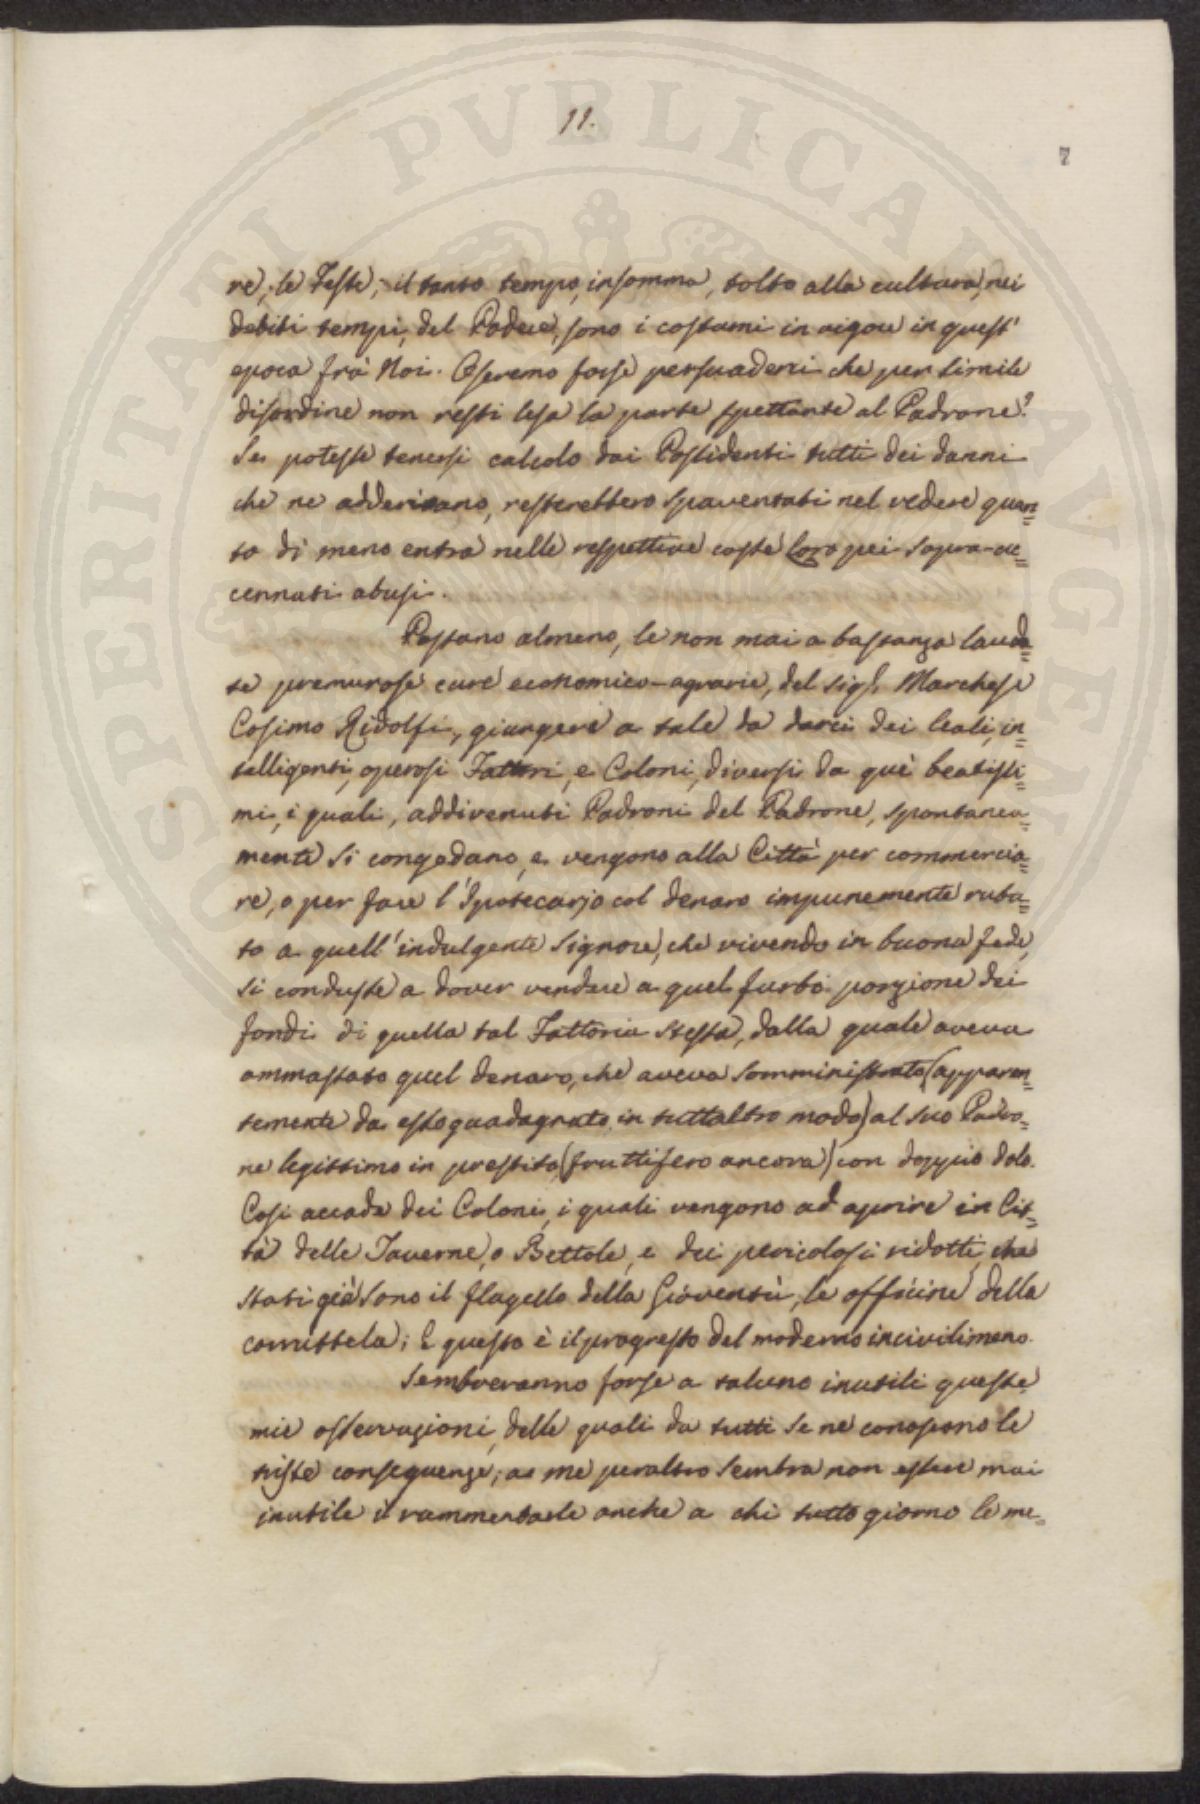 11.
7
re, le Feste; il tanto tempo, insomma, tolto alla cultura, nei
debiti tempi, del Podere, sono i costumi in vigore in quest'
epoca frà Noi. Oseremo forse persuaderci che per simile
disordine non resti lesa la parte spettante al Padrone?
Se potesse tenersi calcolo dai Possidenti tutti dei danni
che ne adderivano, resterebbero spaventati nel vedere quan=
to di meno entra nelle respettive casse Loro pei sopra-ac=
cennati abusi.
Possano almeno, le non mai a bastanza lauda=
te premurose cure economico-agrarie, del Sigr. Marchese
Cosimo Ridolfi, giungere a tale da darci dei leali, in=
telligenti, operosi Fattori, e Coloni, diversi da què beatissi=
mi, i quali, addivenuti Padroni del Padrone, spontanea=
mente si congedano, e vengono alla Città per commercia=
re, o per fare l'Ipotecarjo col denaro impunemente ruba=
to a quell'indulgente Signore, che vivendo in buona fede,
si condusse a dover vendere a quel furbo porzione dei
fondi di quella tal Fattoria stessa, dalla quale aveva
ammassato quel denaro, che aveva somministrato (apparen=
temente da esso guadagnato in tuttaltro modo) al suo Padro=
ne legittimo in prestito (fruttifero ancora) con doppio dolo.
Così accade dei Coloni, i quali vengono ad aprire in Cit=
tà delle Taverne, o Bettole, e dei pericolosi ridotti, che
stati già sono il flagello della Gioventù, le officine della
corruttela; E questo è il progresso del moderno incivilimeno.
Sembreranno forse a taluno inutili queste
mie osservazioni, delle quali da tutti se ne conoscono le
triste conseguenze; a me peraltro sembra non essere mai
inutile il rammentarle anche a chi tutto giorno le me=
SPERITATI PVBLICAE AVGENDAE